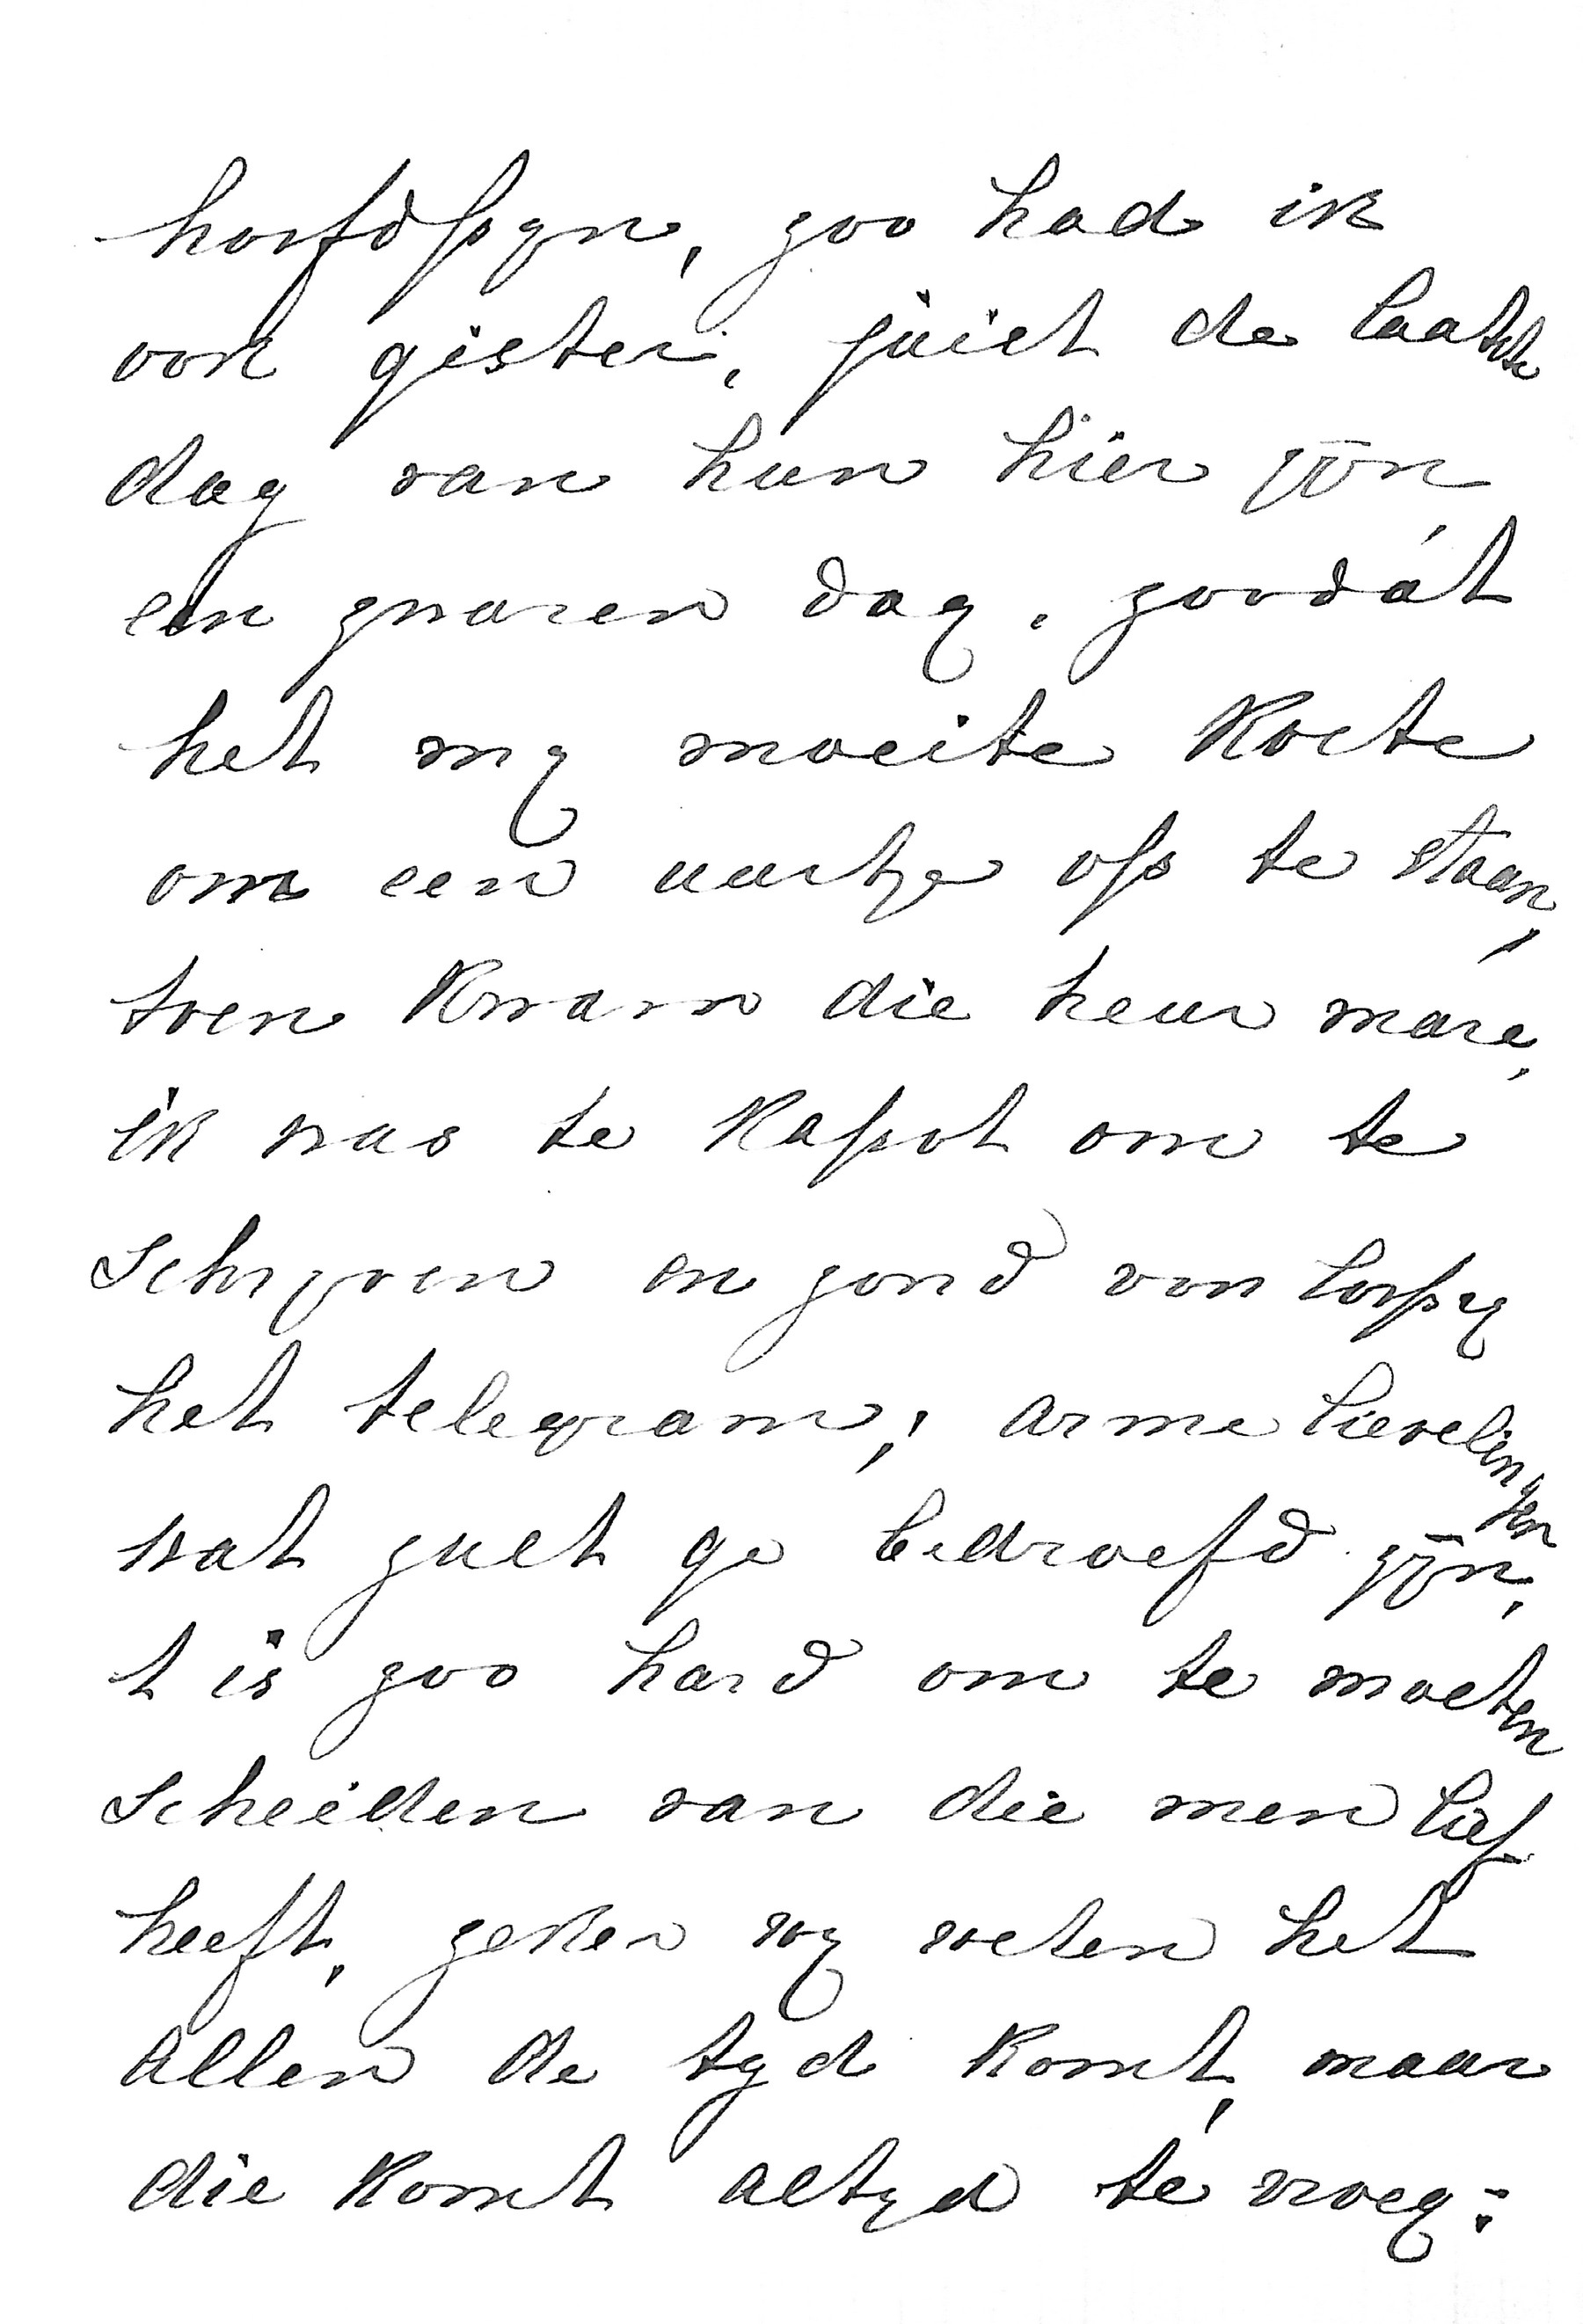 hoofdpyn, zoo had ik
ook gister, juist de laatste
dag van hun hier zijn
een zwaren dag, zoodát
het my moeite koste
om een uurtje op te staan,
toen kwam die heur mare,
ik was te kapot om te
schryven en zond van Loopy
het telegram; arme lievelingen
wat zult ge bedroefd zijn,
t is zoo hard om te moeten
scheiden van die men lief
heeft, zeker wy weten het
allen de tyd komt, maar
die komt altyd te vroeg: